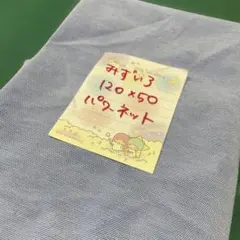 みずいろ
120×50
パワーネット